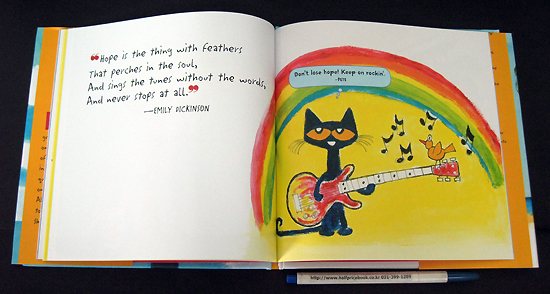 ❝Hope is the thing with feathers
That perches in the soul,
And sings the tunes without the words,
And never stops at all.❞
—EMILY DICKINSON
Don't lose hope! Keep on rockin'.
-PETE
http://www.halfpricebook.co.kr 031-399-1289